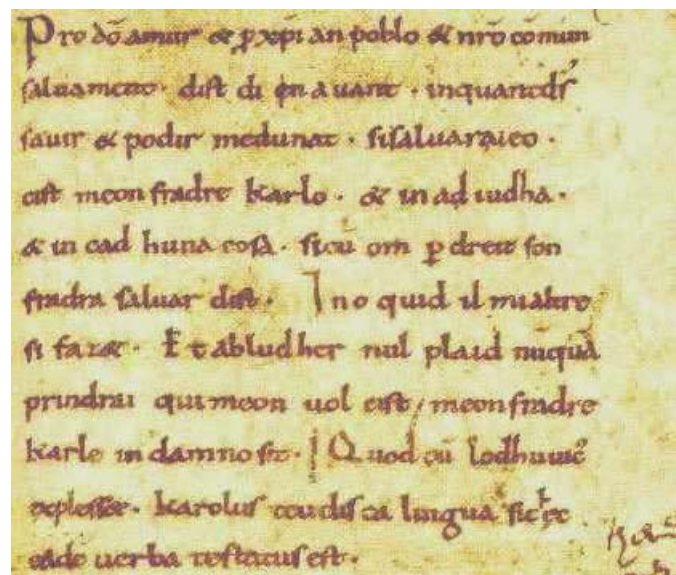 Pro dō amur & p xp̄i an poblo & nrō cōmun
saluament. dist di en auant. inquantds̄
sauir & podir medunat. sisaluaraieo.
cist meon fradre karlo. & in ad iudha.
& in cad huna cosa. sicū om p dreit son
fradra saluar dist. Ino quid il mialtre
si faz&. Et abludher nul plaid nūquā
prindrai qui meon uol cist meonfradre
karle in damno sit. Quod cū lodhuuic̄
explesset. karolus teudisca lingua sic ec
eadē uerba testatusest.